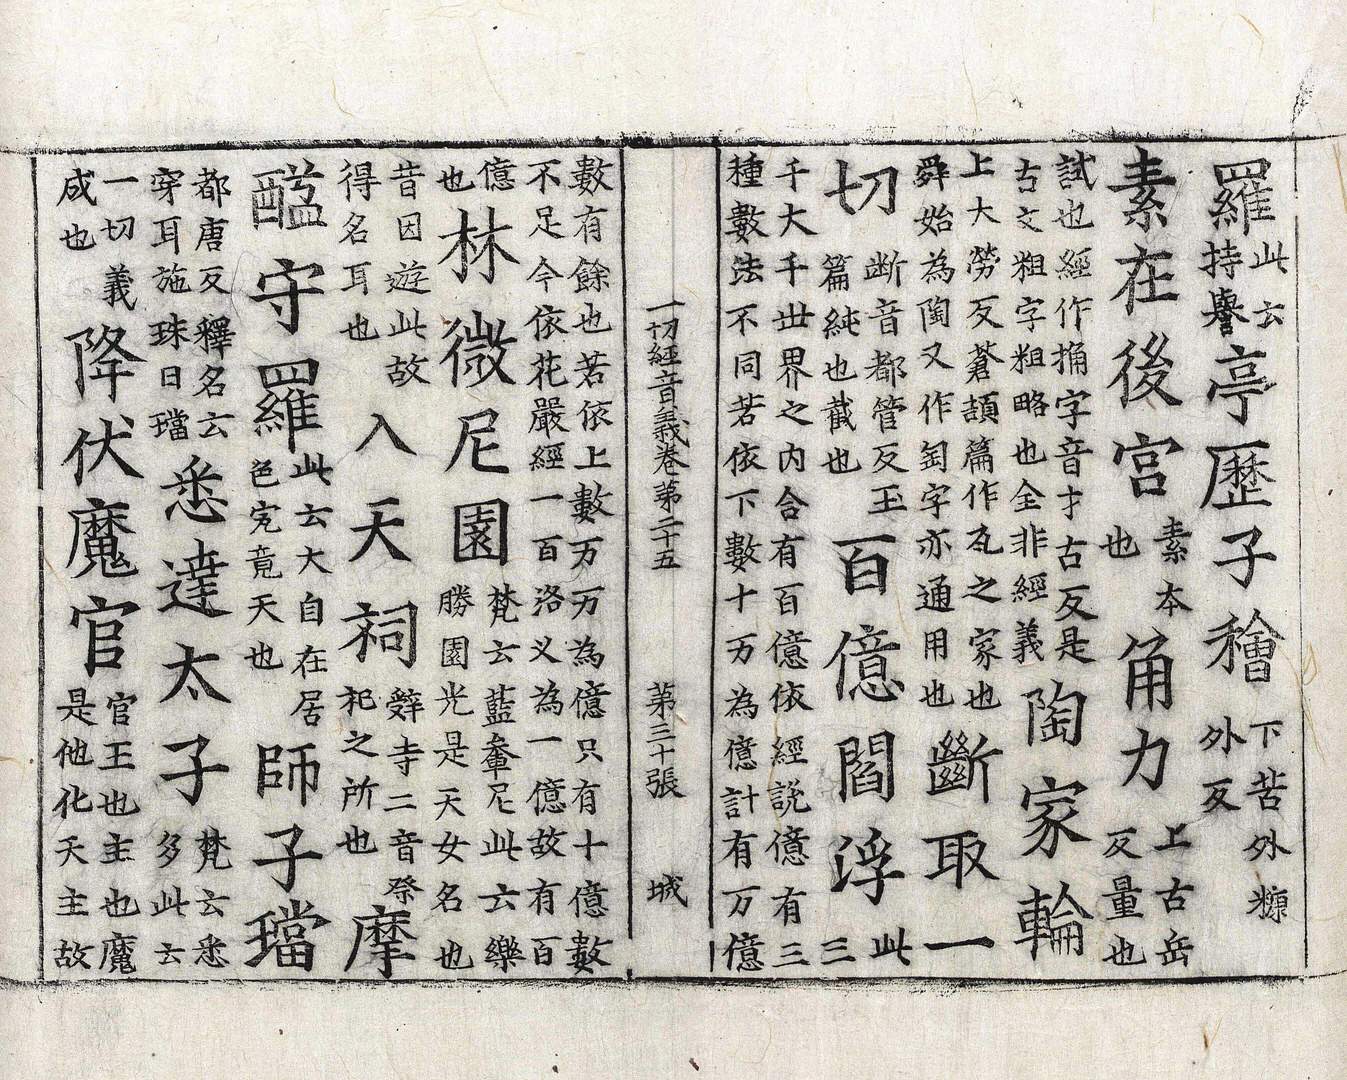 羅此云持譽亭歷子𥢶下苦外糠外反
素在後宮素本也角力上古岳反量也
試也經作捔字音才古反是古文粗字粗略也全非經義陶家輪
上大勞反蒼頡篇作瓦之家也舜始為陶又作匋字亦通用也斷取一
切斷音都管反玉篇純也截也百億閻浮此三
千大千世界之內合有百億依經說億有三種數法不同若依下數十万為億計有万億
一切經音義卷第二十五 第三十張 城
數有餘也若依上數万万為億只有十億數不足今依花嚴經一百洛义為一億故有百
億也林微尼園梵云藍軬尼此云樂勝園光是天女名也
昔因遊此故得名耳也入天祠辭寺二音祭祀之所也摩
醯守羅此云大自在居色究竟天也師子璫
都唐反釋名云穿耳施珠曰璫悉達太子梵云悉多此云
一切義成也降伏魔官官王也主也魔是他化天主故